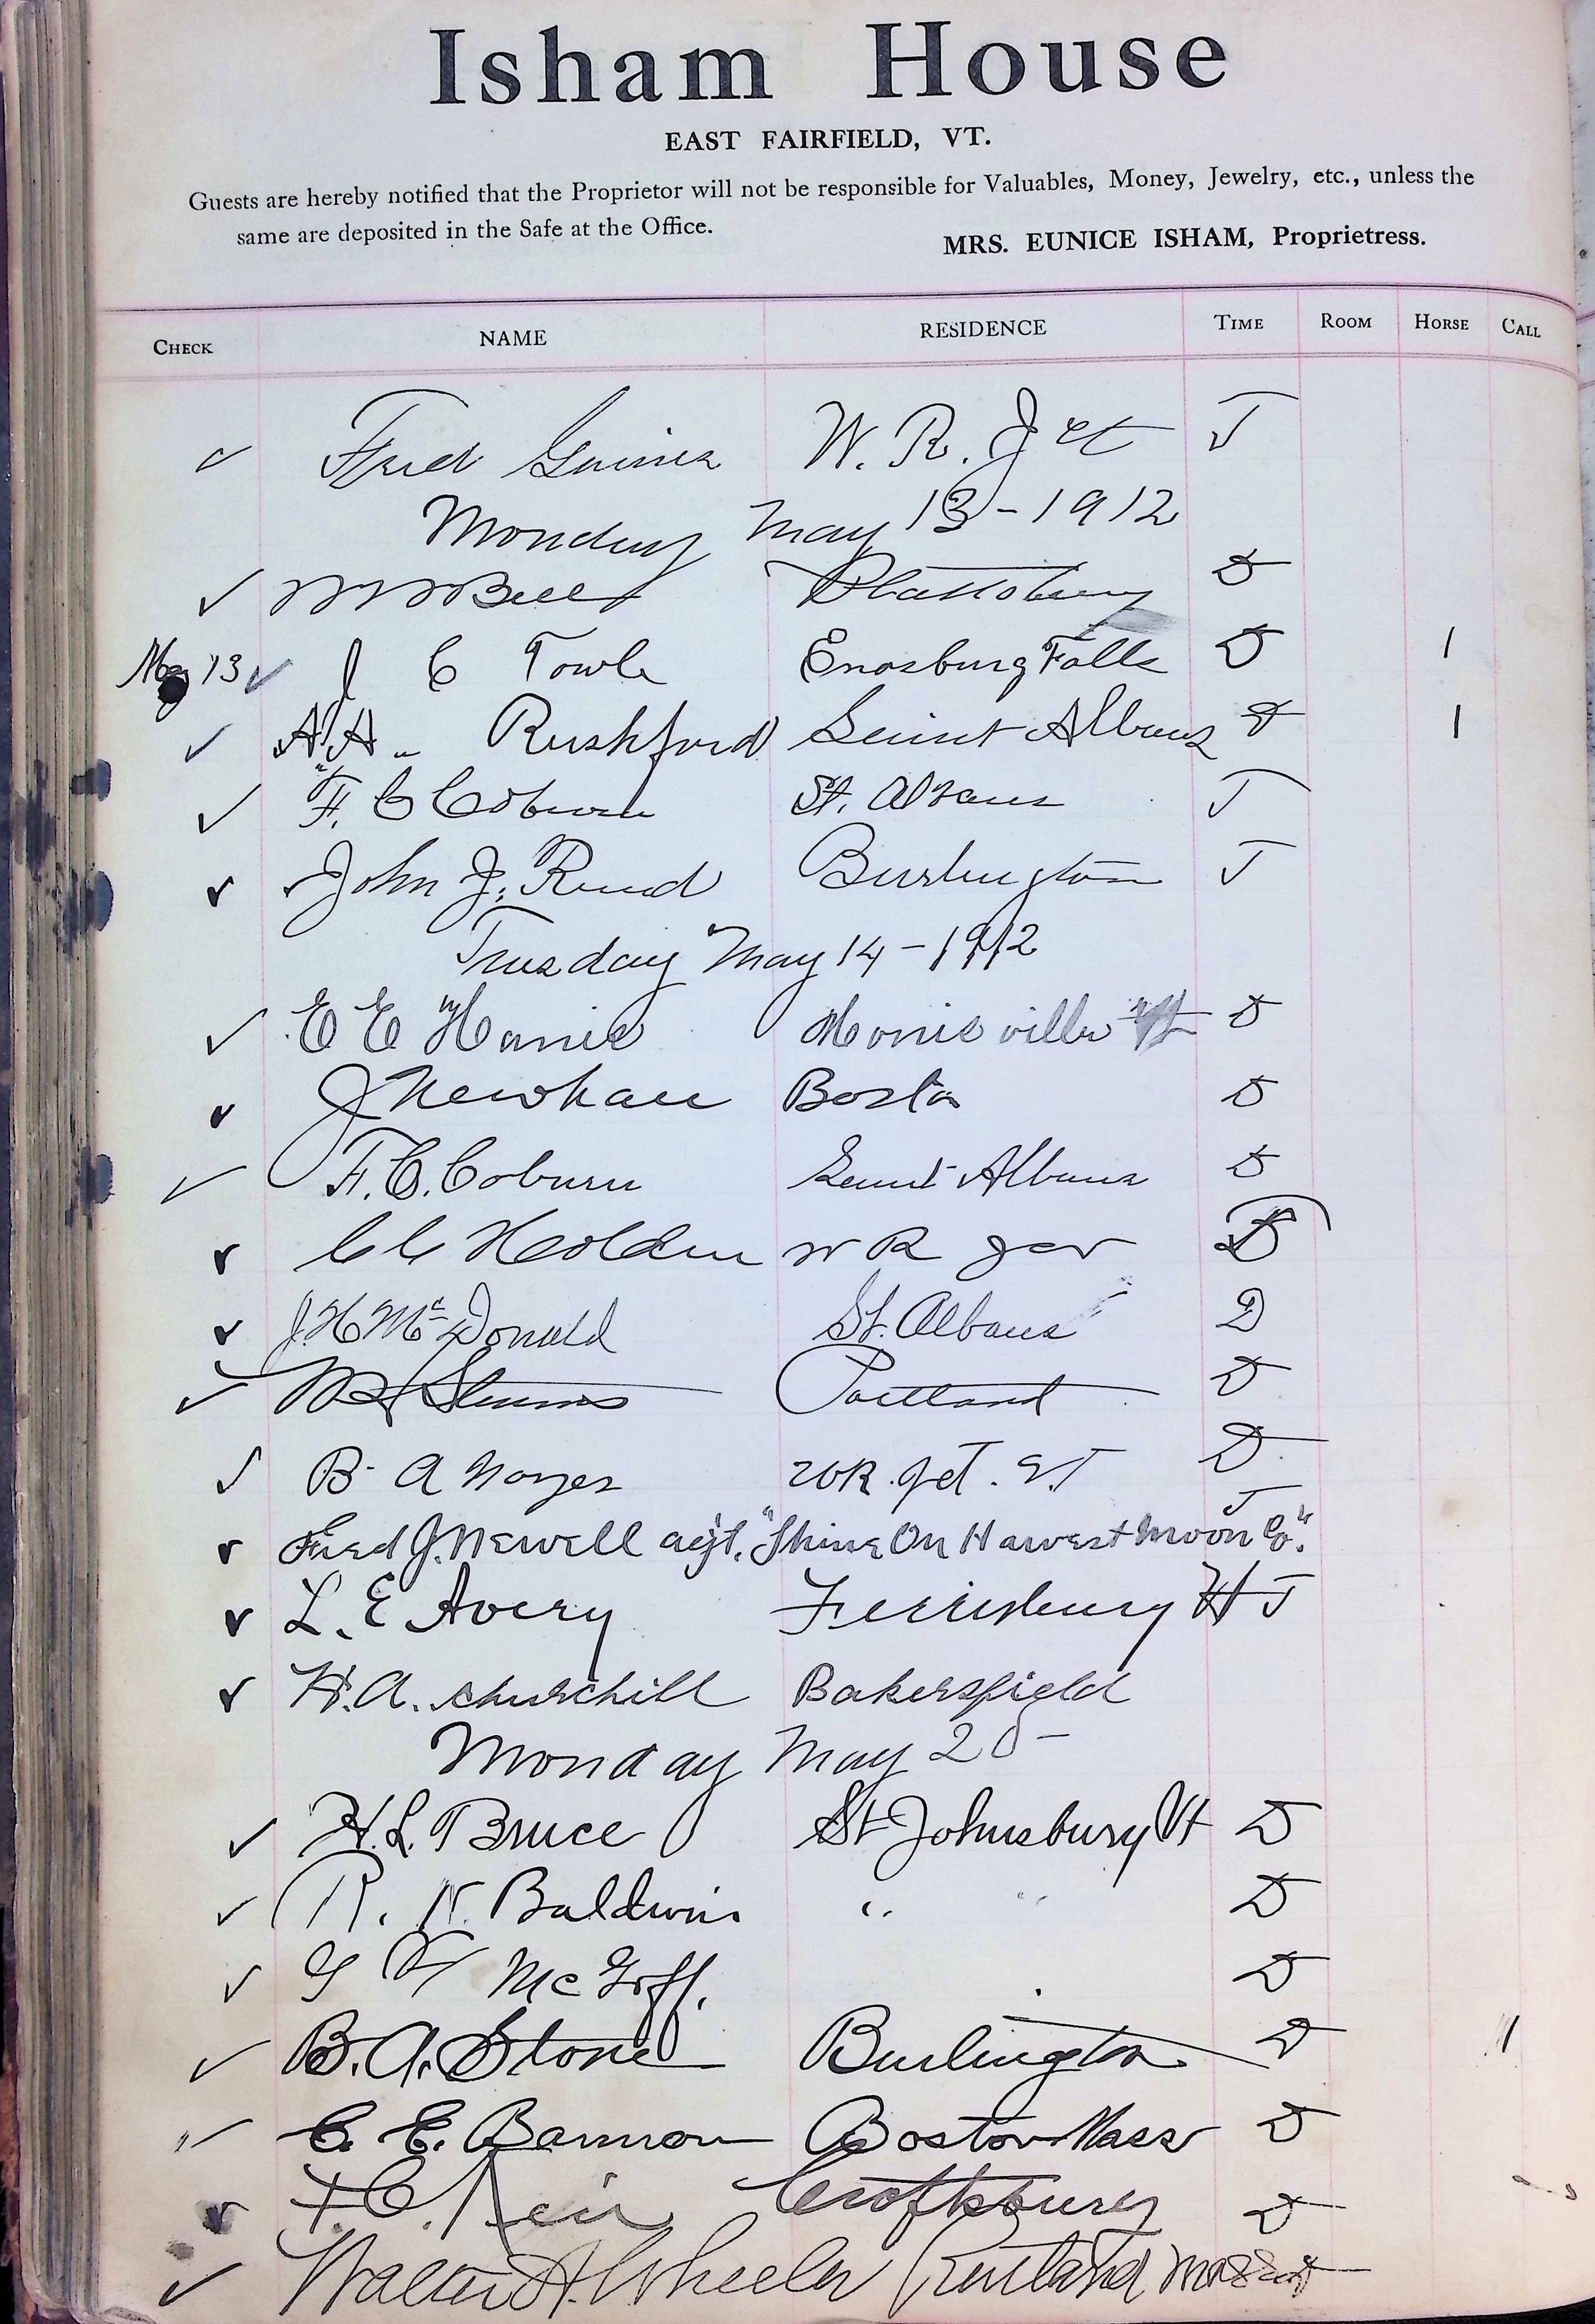 Isham House
EAST FAIRFIELD, VT.
Guests are hereby notified that the Proprietor will not be responsible for Valuables, Money, Jewelry, etc., unless the
same are deposited in the Safe at the Office.
MRS. EUNICE ISHAM, Proprietress.
CHECK NAME RESIDENCE TIME ROOM HORSE CALL
✓ Fred W. R. Jct
Monday May 13-1912
✓ Bell Plattsburg D
May 13 ✓ J C Towle Enosburg Falls D 1
✓ A A Rushford Saint Albans 1
✓ F. C Coburn St. Albans
✓ John J. Burlington
Tuesday May 14-1912
✓ E E Morrisville Vt D
✓ J Newhall Boston D
✓ F. C. Coburn Saint Albans D
✓ C C Holden W R Jct
✓ J. H McDonald St. Albans D
✓ Portland D
✓ B. A Noyes W R. Jct. VT D
✓ Fred J. Newell agt. "Shine On Harvest Moon Co."
✓ L. E Avery Ferrisburg Vt
✓ H. A. Churchill Bakersfield
Monday May 20-
✓ H. L. Bruce St Johnsbury Vt D
✓ R. N. Baldwin " " D
✓ G McGoff. D
✓ B. A. Stone Burlington D 1
C. E. Bannon Boston Mass D
✓ F. C. Craftsbury D
✓ Walter A Wheeler Rutland Mass